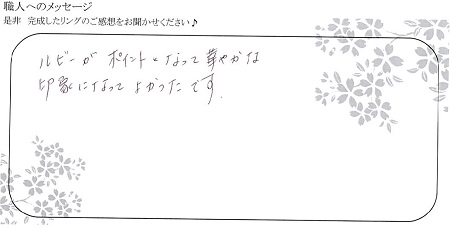 職人へのメッセージ
是非 完成したリングのご感想をお聞かせください♪
ルビーがポイントになって華やかな
印象になってよかったです。